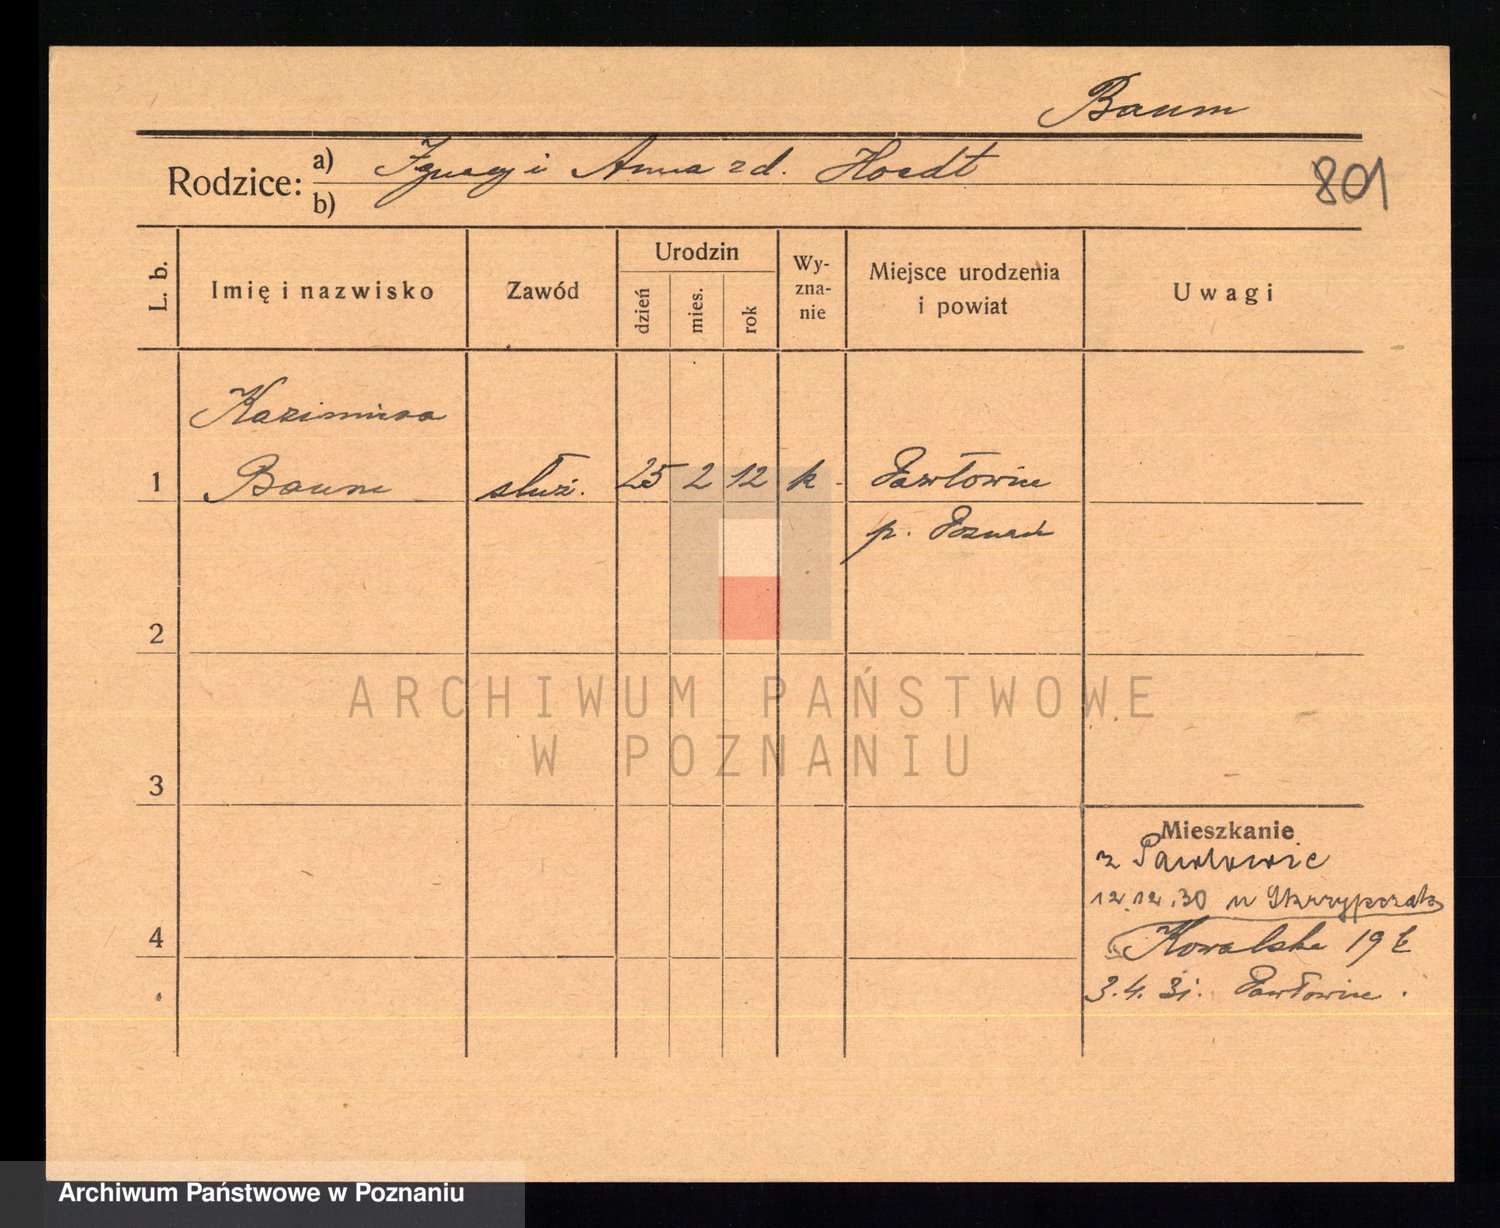 Baum
Rodzice: a) Ignacy i Anna z d. Hoedt
b)
801
L. b.
Imię i nazwisko
Zawód
Urodzin
dzień
mies.
rok
Wy-
zna-
nie
Miejsce urodzenia
i powiat
Uwagi
Kazimiera
1 Baum służ. 25 2 12 k Pawłowice
p. Poznań
2
3
4
Mieszkanie
z Pawłowic
12.12.30 u Skrzypczak
Kowalska 19
3.4.31. Pawłowice.
ARCHIWUM PAŃSTWOWE
W POZNANIU
Archiwum Państwowe w Poznaniu